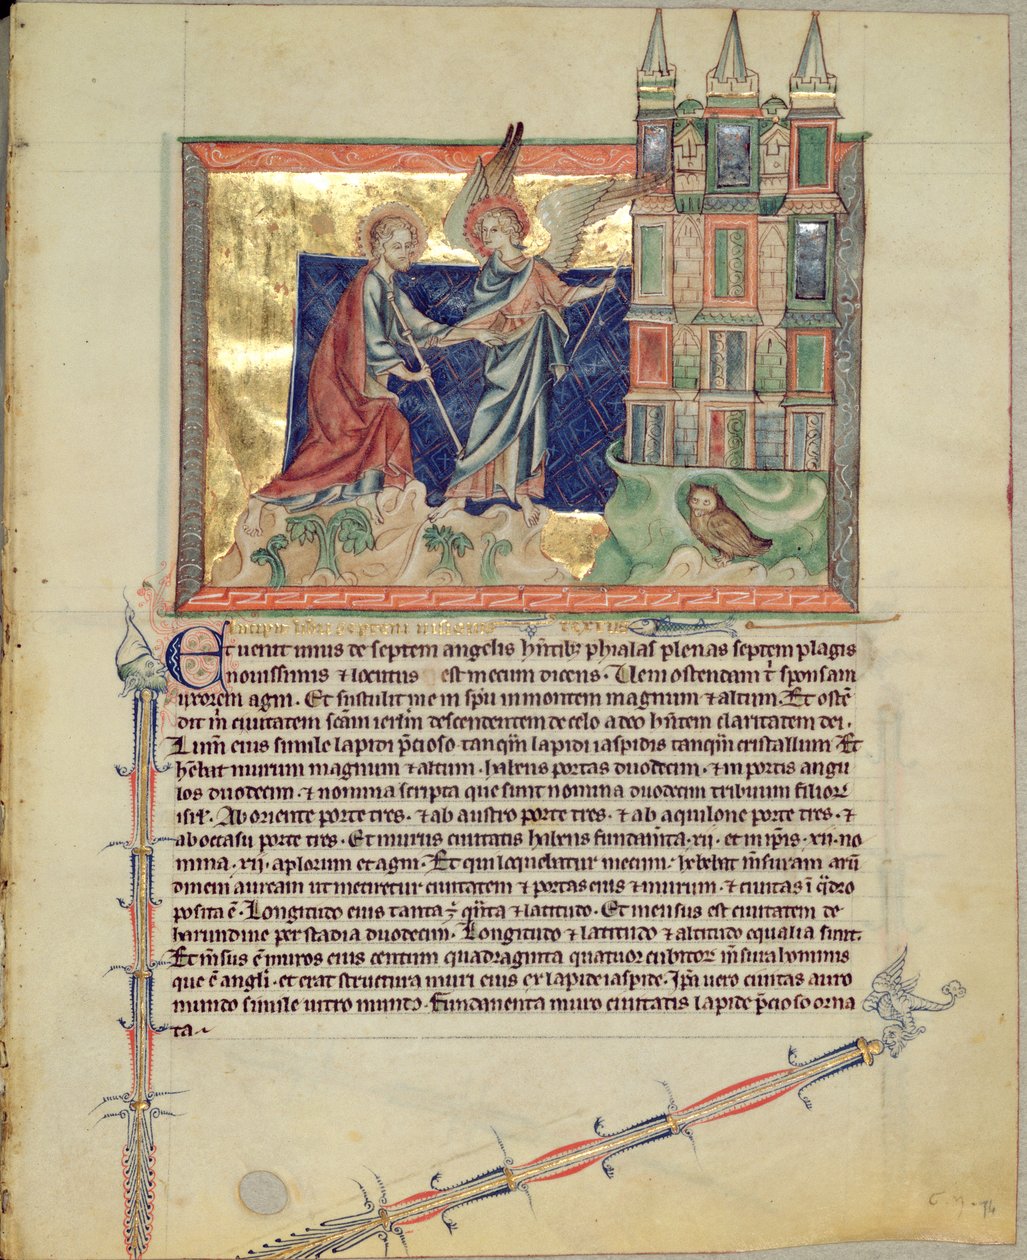 Et venit unus de septem angelis hñtibꝫ phialas plenas septem plagis
nouissimis ⁊ locutus est mecum dicens. Ueni ostendam t' sponsam
uxorem agni. Et sustulit me in sp̃u in montem magnum ⁊ altum. Et ostẽ
dit m̃ ciuitatem sc̃am ierl̃m descendentem de celo a deo hñtem claritatem dei.
Lum̃ eius simile lapidi p̃cioso tanq̃m lapidi iaspidis tanq̃m cristallum Et
hẽbat murum magnum ⁊ altum. habens portas duodecim. ⁊ in portis angu
los duodecim. ⁊ nomina scripta que sunt nomina duodecim tribuum filiorꝝ
isrl'. Ab oriente porte tres. ⁊ ab austro porte tres. ⁊ ab aquilone porte tres. ⁊
ab occasu porte tres. Et murus ciuitatis habens fundam̃ta .xii. et in ip̃is .xii. no
mina .xii. aplorum et agni. Et qui loquebatur mecum. hebebat m̃suram arũ
dineam auream ut metiretur ciuitatem ⁊ portas eius ⁊ murum. ⁊ ciuitas ĩ q̃dro
posita ẽ. Longitudo eius tanta ꝫ q̃ñta ⁊ latitudo. Et mensus est ciuitatem de
harundine per stadia duodecim. Longitudo ⁊ latitudo ⁊ altitudo equalia sunt.
Et m̃sus ẽ muros eius centum quadraginta quatuor cubitorꝝ m̃sura hominis
que ẽ angli. et erat structura muri eius ex lapide iaspide. Ip̃a uero ciuitas auro
mundo simile uitro mundo. Fundamenta muro ciuitatis lapide p̃cioso orna
ta.